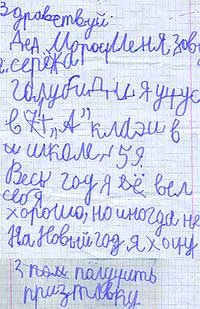 Здравствуй
Дед Мороз Меня зов
сережа
голубиди я учус
в 7 "А" класи в
школе 59.
Весь год я вё вел
себя
хорошо, но иногда не
На Новый год я хочу
получить
приставку